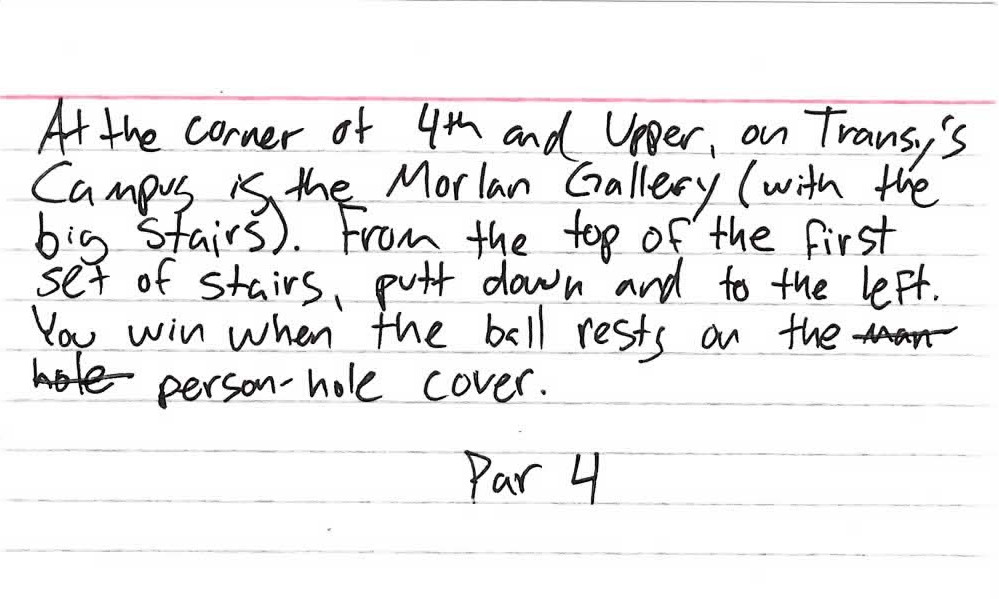 At the corner of 4th and Upper, on Transy's
Campus is the Morlan Gallery (with the
big stairs). From the top of the first
set of stairs, putt down and to the left.
You win when the ball rests on the man
hole person-hole cover.
Par 4